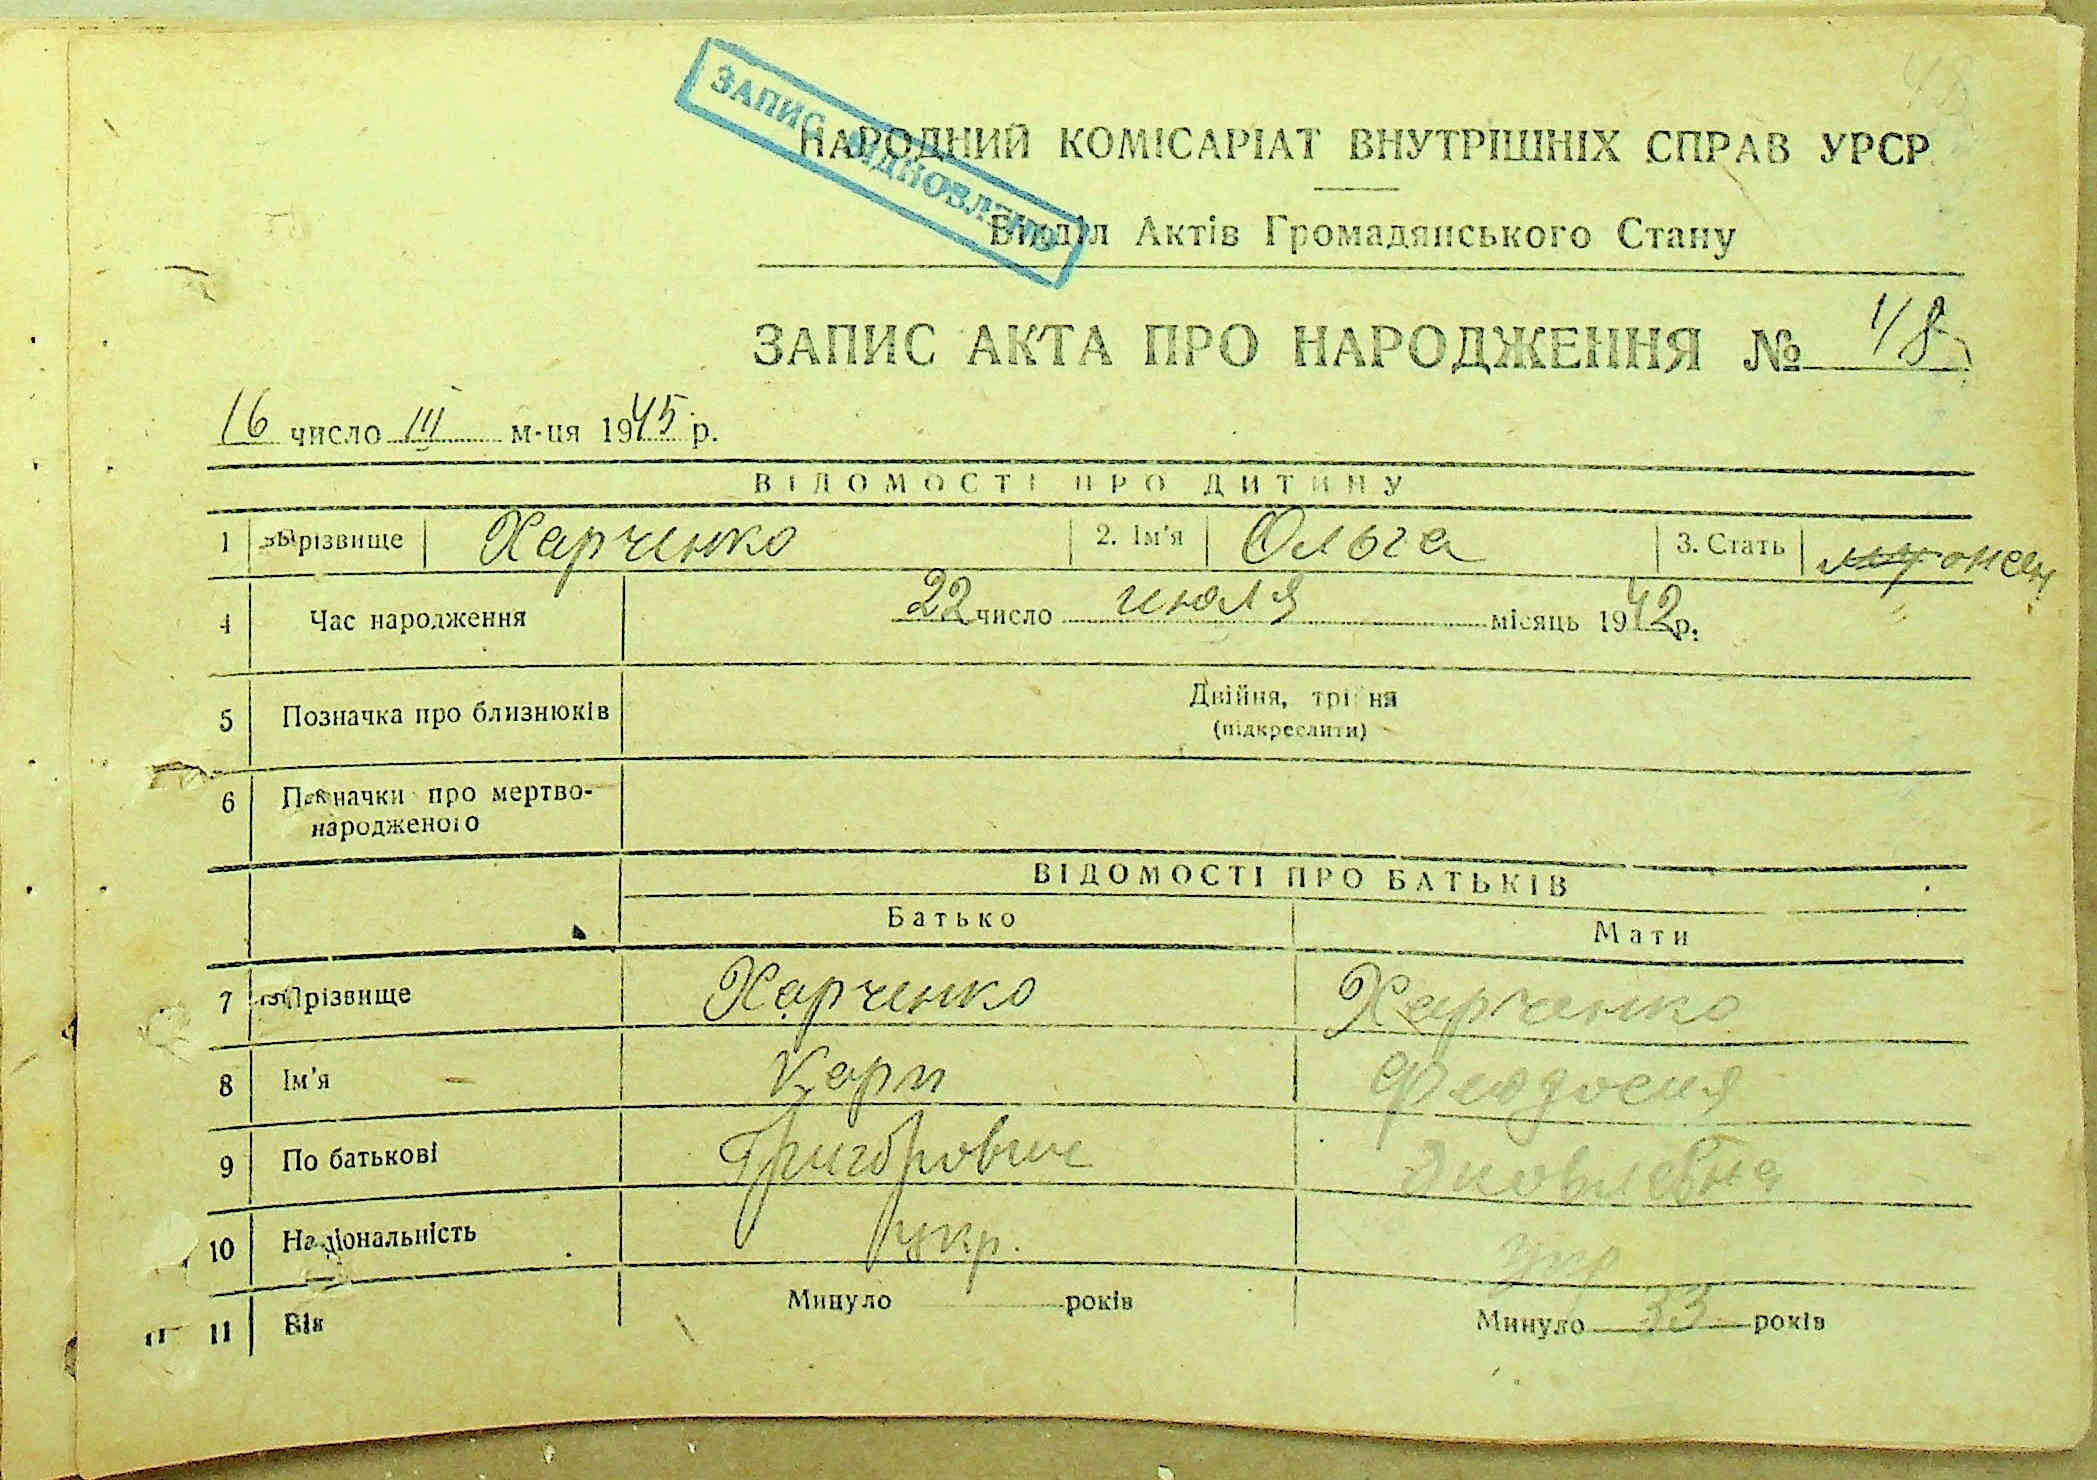 48
ЗАПИС ВІДНОВЛЕНО
НАРОДНИЙ КОМІСАРІАТ ВНУТРІШНІХ СПРАВ УРСР
Відділ Актів Громадянського Стану
ЗАПИС АКТА ПРО НАРОДЖЕННЯ № 48
16 число III м-ця 1945 р.
ВІДОМОСТІ ПРО ДИТИНУ
1 Прізвище Харченко 2. Ім'я Ольга 3. Стать муж жен
4 Час народження 22 число июля місяць 1942 р.
5 Позначка про близнюків Двійня, трійня
(підкреслити)
6 Позначки про мертво-
народженого
ВІДОМОСТІ ПРО БАТЬКІВ
Батько Мати
7 Прізвище Харченко Харченко
8 Ім'я Карп Феодосия
9 По батькові Григорович Яковлевна
10 Національність укр. укр
11 Вік Минуло років Минуло 33 років